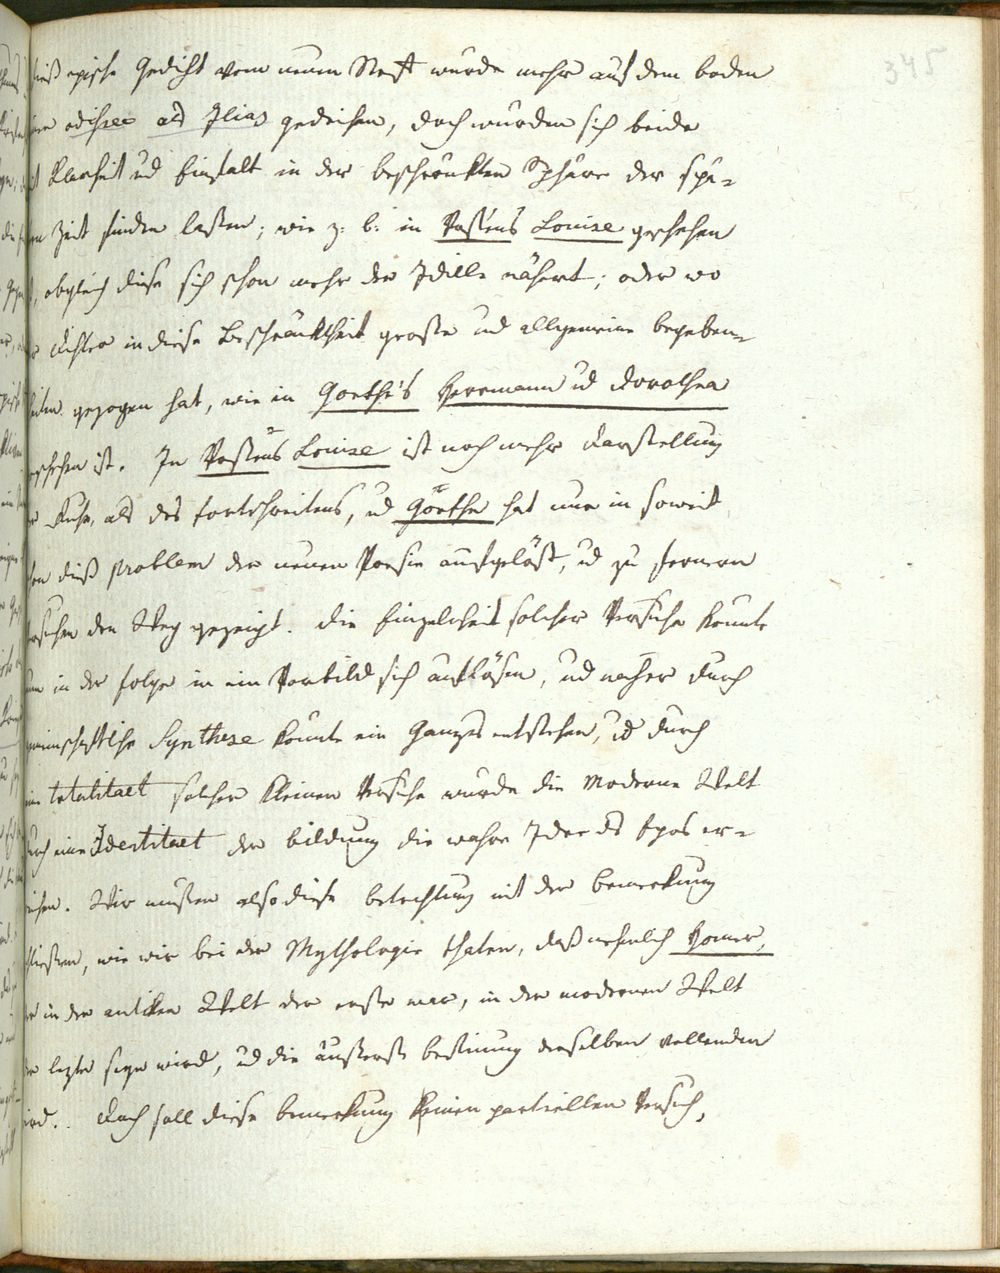 345
dieß epische Gedicht vom neuen Stoff wurde mehr auf dem boden
einer odissee als Ilias gedeihen, doch wurden sich beide
mit Klarheit ud Einfalt in der beschränkten Sphäre der spä-
tern Zeit finden laßen; wie z. b. in Vossens Louise geschehen
ist, obgleich diese sich schon mehr der Idille nähert; oder wo
der Dichter in diese Beschränktheit große ud allgemeine begeben-
heiten gezogen hat, wie in Goethe's Herrmann ud Dorothea
geschehen ist. In Vossens Louise ist noch mehr Darstellung
der Ruhe, als des fortschreitens, ud Göethe hat nur in soweit
schon dieß problem der neuen Poesie aufgelößt, ud zu fernern
Versuchen den Weg gezeigt. Die Einzelnheit solcher Versuche konnte
nun in der folge in ein Vorbild sich auflösen, ud näher durch
gemeinschaftliche Synthese könnte ein Ganzes entstehen, ud durch
eine totalitaet solcher kleinen Versuche wurde die Moderne Welt
durch eine Identitaet der bildung die wahre Idee des Epos er-
reichen. Wir mußen also diese betrachtung mit der bemerkung
schließen, wie wir bei der Mythologie thaten, daß nehmlich Homer,
der in der antiken Welt der erste war, in der modernen Welt
der lezte seyn wird, ud die äußerste bestimung derselben vollenden
wird. Doch soll diese bemerkung keinen partiellen Versuch,